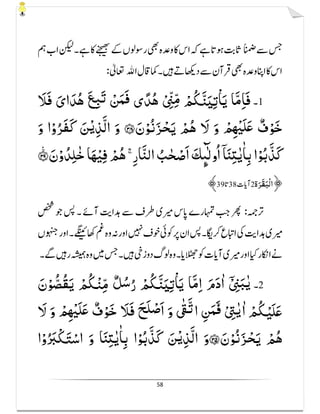 جس سے ضمناً ثابت ہوتا ہے کہ اس کا وعدہ بھی رسولوں کے بھیجنے کا ہے۔ لیکن اب ہم
اس کا اپنا وعدہ بھی قرآن سے دکھاتے ہیں۔ کما قال اللہ تعالیٰ:
1۔ فَاِمَّا يَاْتِيَنَّكُمْ مِّنِّيْ هُدًى فَمَنْ تَبِعَ هُدَايَ فَلَا
خَوْفٌ عَلَيْهِمْ وَ لَا هُمْ يَحْزَنُوْنَ ۝۳۸ وَ الَّذِيْنَ كَفَرُوْا وَ
كَذَّبُوْا بِاٰيٰتِنَآ اُولٰٓىِٕكَ اَصْحٰبُ النَّارِ ۚ هُمْ فِيْهَا خٰلِدُوْنَ ۝۳۹
﴿اَلْبَقَرَة 2 آیات 38 تا 39﴾
ترجمہ: پھر جب تمہارے پاس میری طرف سے ہدایت آئے۔ پس جو شخص
میری ہدایت کی اتباع کریگا۔ پس ان پر کوئی خوف نہیں اور نہ وہ غم کھائینگے۔ اور۔ جنہوں
نے انکار کیا اور میری آیات کو جھٹلایا۔ وہ لوگ دوزخی ہیں۔ جس میں وہ ہمیشہ رہیں گے۔
2۔ يٰبَنِيْٓ اٰدَمَ اِمَّا يَاْتِيَنَّكُمْ رُسُلٌ مِّنْكُمْ يَقُصُّوْنَ
عَلَيْكُمْ اٰيٰتِيْ ۙ فَمَنِ اتَّقٰى وَ اَصْلَحَ فَلَا خَوْفٌ عَلَيْهِمْ وَ لَا
هُمْ يَحْزَنُوْنَ ۝۳۵ وَ الَّذِيْنَ كَذَّبُوْا بِاٰيٰتِنَا وَ اسْتَكْبَرُوْا
58